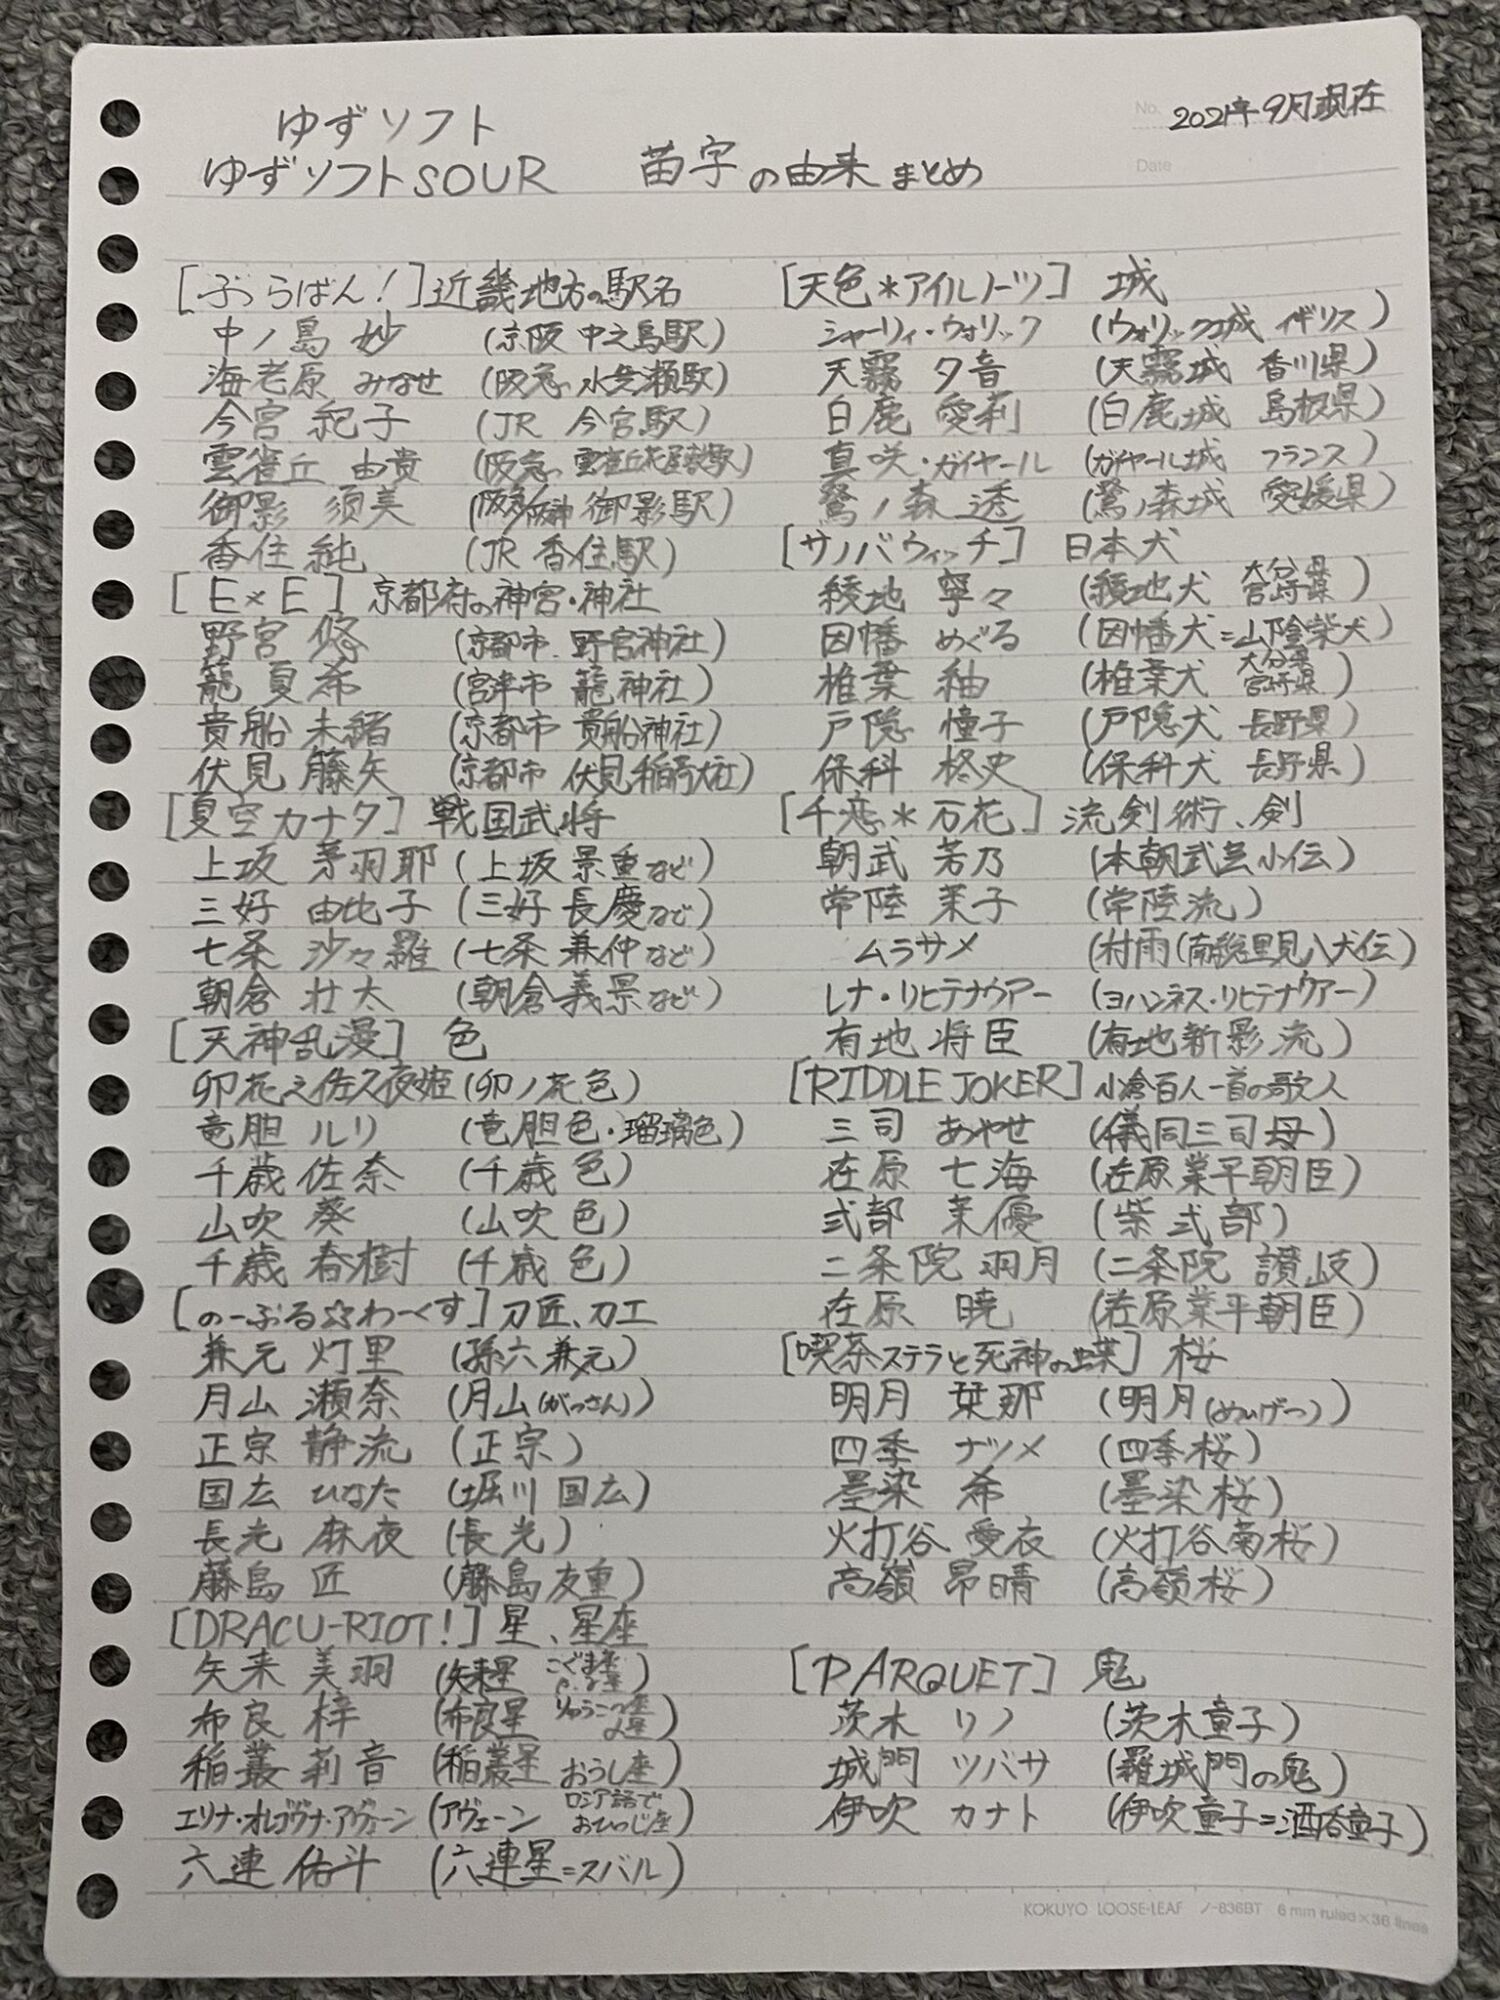 No.
2021年9月現在
Date
ゆずソフト
ゆずソフトSOUR 苗字の由来まとめ
[ぶらばん!]近畿地方の駅名
中ノ島 妙 (京阪 中之島駅)
海老原 みなせ (阪急 水無瀬駅)
今宮 紀子 (JR 今宮駅)
雲雀丘 由貴 (阪急 雲雀丘花屋敷駅)
御影 須美 (阪急/阪神 御影駅)
香住 純 (JR 香住駅)
[E×E] 京都府の神宮・神社
野宮 悠 (京都市 野宮神社)
籠 夏希 (宮津市 籠神社)
貴船 未緒 (京都市 貴船神社)
伏見 藤矢 (京都市 伏見稲荷大社)
[夏空カナタ] 戦国武将
上坂 茅羽耶 (上坂 景重など)
三好 由比子 (三好 長慶など)
七条 沙々羅 (七条 兼仲など)
朝倉 壮太 (朝倉義景など)
[天神乱漫] 色
卯花之佐久夜姫 (卯ノ花色)
竜胆 ルリ (竜胆色・瑠璃色)
千歳 佐奈 (千歳色)
山吹 葵 (山吹色)
千歳 春樹 (千歳色)
[のーぶる☆わーくす] 刀匠、刀工
兼元 灯里 (孫六兼元)
月山 瀬奈 (月山(がっさん))
正宗 静流 (正宗)
国広 ひなた (堀川国広)
長光 麻夜 (長光)
藤島 匠 (藤島友重)
[DRACU-RIOT!] 星、星座
矢来 美羽 (矢来星 こぐま座β・γ星)
布良 梓 (布良星 りゅうこつ座α星)
稲叢 莉音 (稲叢星 おうし座)
エリナ・オレゴヴナ・アヴェーン (アヴェーン ロシア語でおひつじ座)
六連 佑斗 (六連星=スバル)
[天色*アイルノーツ] 城
シャーリィ・ウォリック (ウォリック城 イギリス)
天霧 夕音 (天霧城 香川県)
白鹿 愛莉 (白鹿城 島根県)
真咲・ガイヤール (ガイヤール城 フランス)
鷺ノ森 透 (鷺ノ森城 愛媛県)
[サノバウィッチ] 日本犬
綾地 寧々 (綾地犬 大分県 宮崎県)
因幡 めぐる (因幡犬=山陰柴犬)
椎葉 紬 (椎葉犬 大分県 宮崎県)
戸隠 憧子 (戸隠犬 長野県)
保科 柊史 (保科犬 長野県)
[千恋*万花] 流剣術、剣
朝武 芳乃 (本朝武芸小伝)
常陸 茉子 (常陸流)
ムラサメ (村雨(南総里見八犬伝)
レナ・リヒテナウアー (ヨハンネス・リヒテナウアー)
有地 将臣 (有地新影流)
[RIDDLE JOKER] 小倉百人一首の歌人
三司 あやせ (儀同三司母)
在原 七海 (在原業平朝臣)
式部 茉優 (紫式部)
二条院 羽月 (二条院 讃岐)
在原 暁 (在原業平朝臣)
[喫茶ステラと死神の蝶] 桜
明月 栞那 (明月(めいげつ))
四季 ナツメ (四季桜)
墨染 希 (墨染桜)
火打谷 愛衣 (火打谷菊桜)
高嶺 昂晴 (高嶺桜)
[PARQUET] 鬼
茨木 リノ (茨木童子)
城門 ツバサ (羅城門の鬼)
伊吹 カナト (伊吹童子=酒呑童子)
KOKUYO LOOSE-LEAF ノ-836BT 6 mm ruled×36 lines